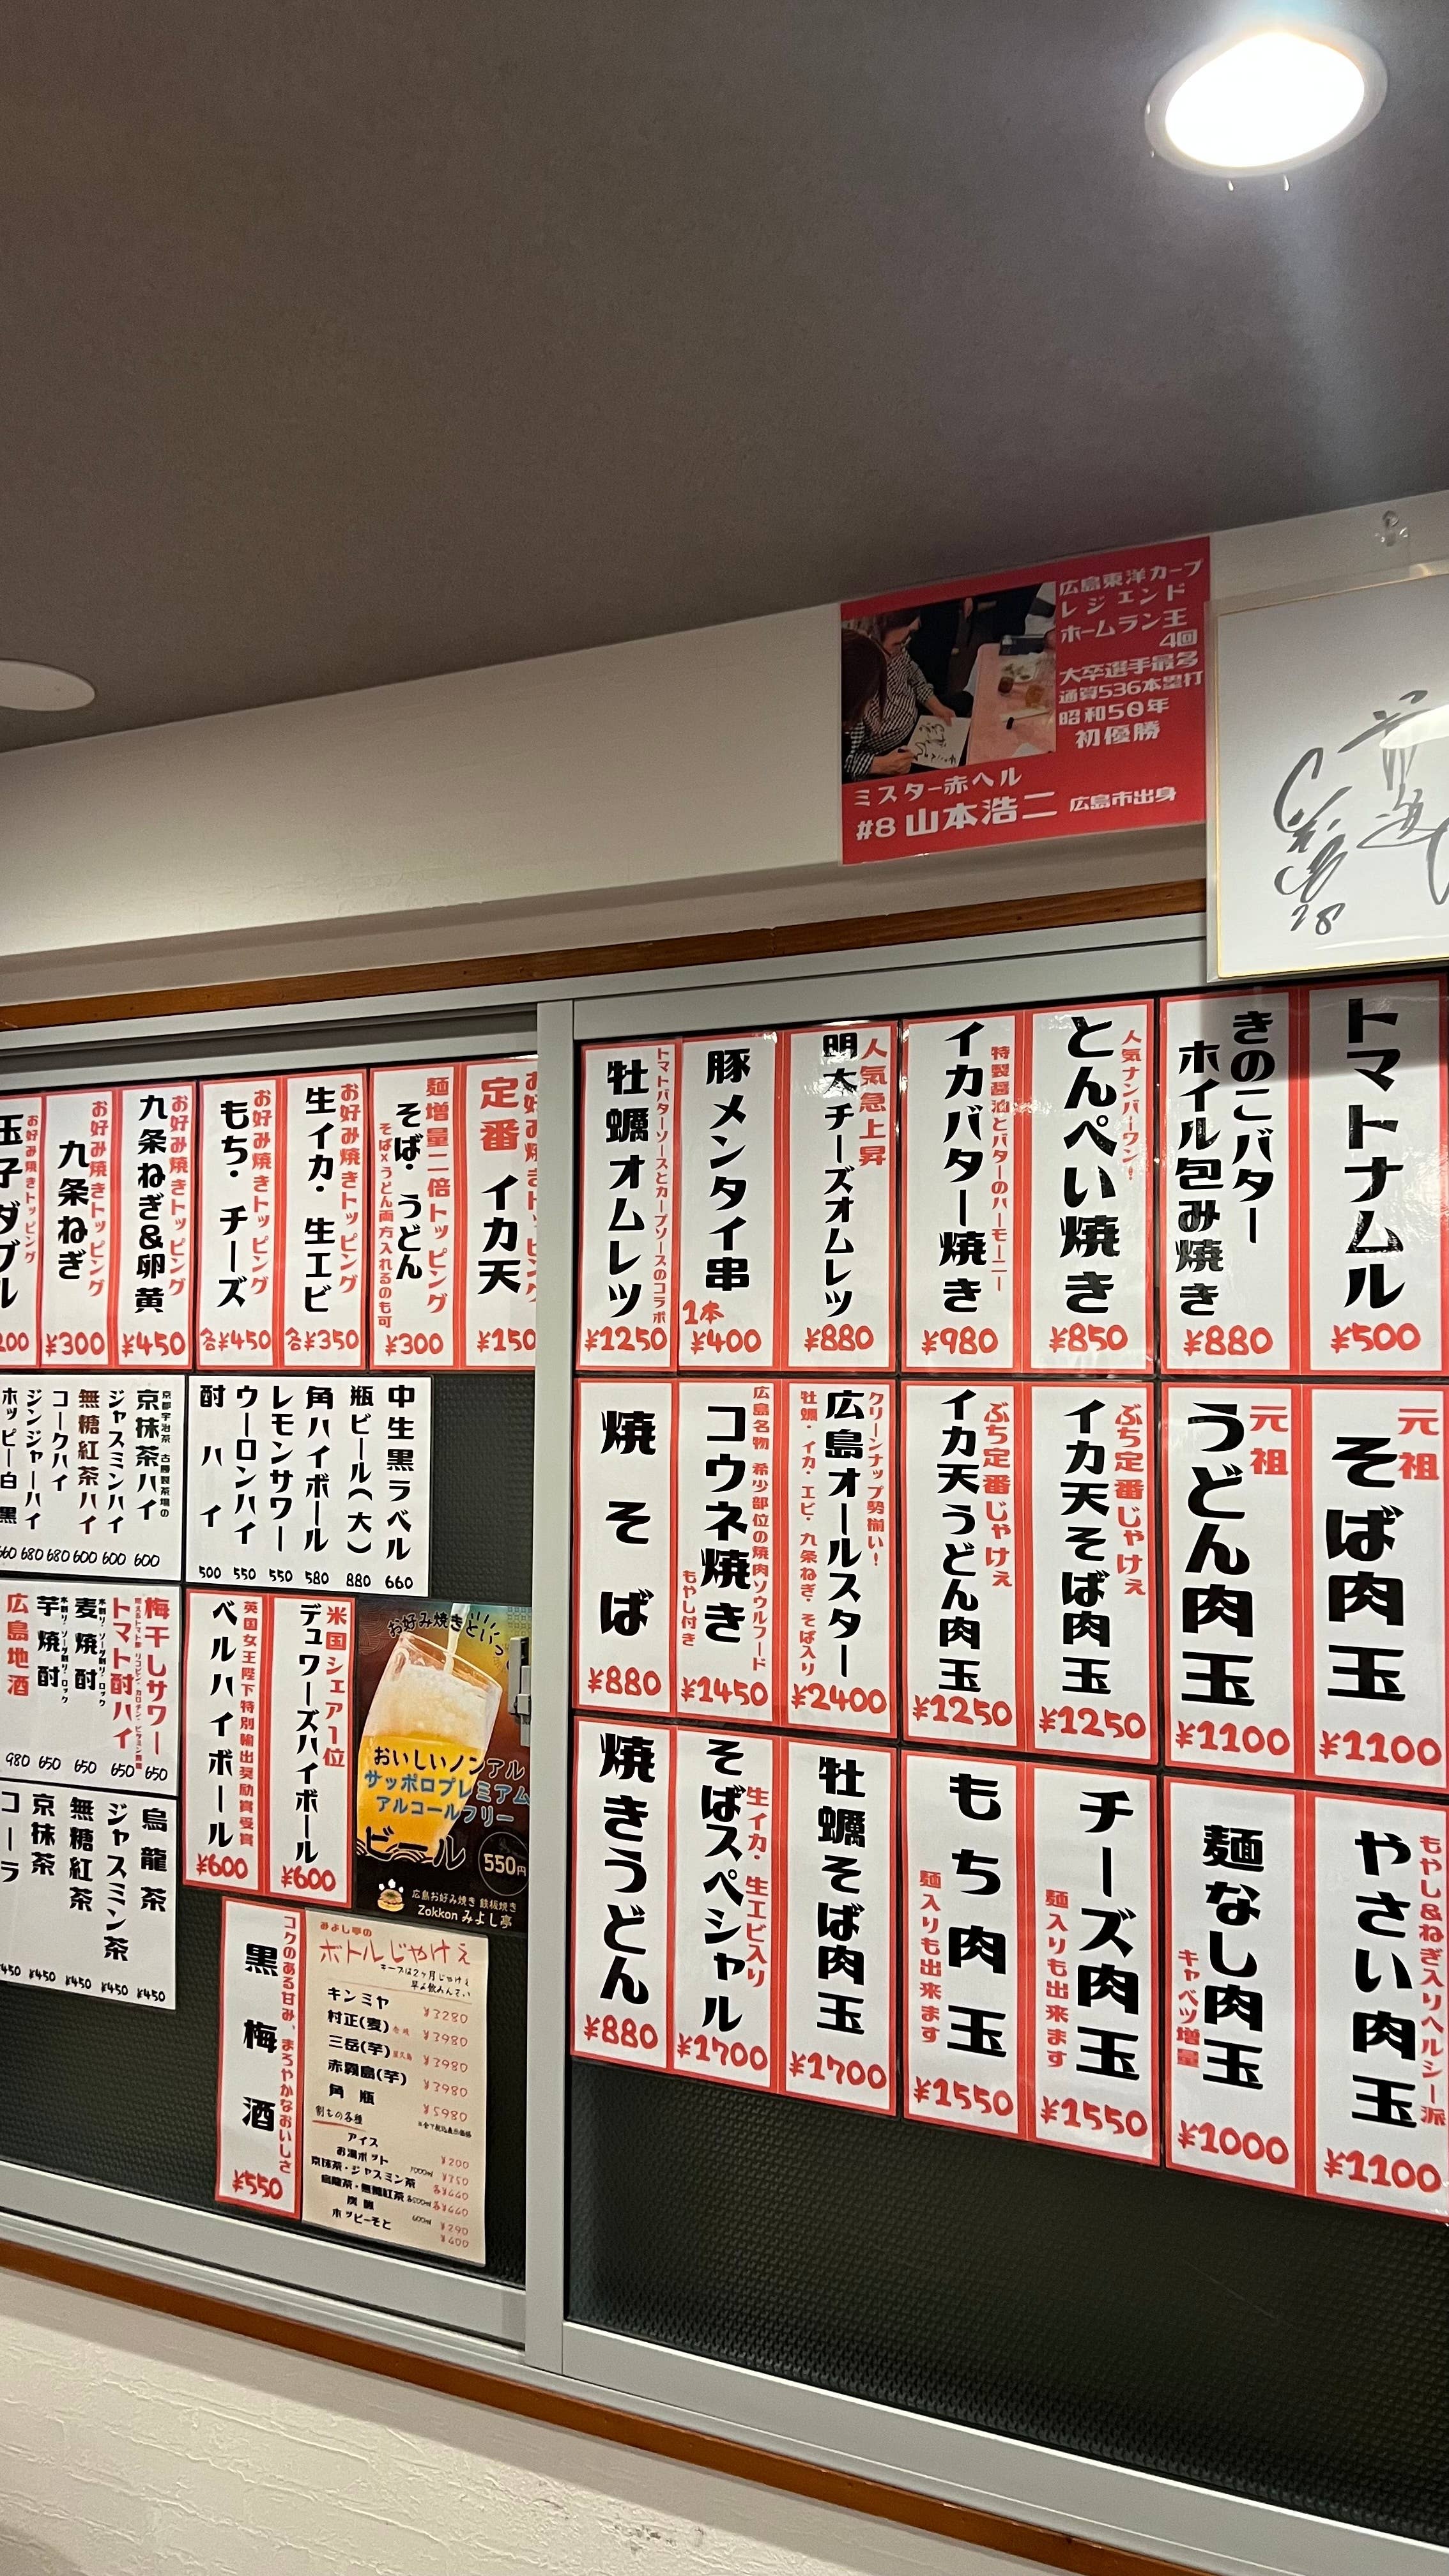 広島東洋カープ
レジェンド
ホームラン王
4回
大卒選手最多
通算536本塁打
昭和50年
初優勝
ミスター赤ヘル
#8 山本浩二 広島市出身
28
トマトナムル
¥500
きのこバター
ホイル包み焼き
¥880
人気ナンバーワン!
とんぺい焼き
¥850
特製醤油とバターのハーモニー
イカバター焼き
¥980
人気急上昇
明太チーズオムレツ
¥880
豚メンタイ串
1本
¥400
トマトバターソースとカープソースのコラボ
牡蠣オムレツ
¥1250
元祖
そば肉玉
¥1100
元祖
うどん肉玉
¥1100
ぶち定番じゃけぇ
イカ天そば肉玉
¥1250
ぶち定番じゃけぇ
イカ天うどん肉玉
¥1250
クリーンナップ勢揃い!
広島オールスター
牡蠣・イカ・エビ・九条ねぎ・そば入り
¥2400
広島名物 希少部位の焼肉ソウルフード
コウネ焼き
もやし付き
¥1450
焼そば
¥880
もやし&ねぎ入りヘルシー派
やさい肉玉
¥1100
麺なし肉玉
キャベツ増量
¥1000
チーズ肉玉
麺入りも出来ます
¥1550
もち肉玉
麺入りも出来ます
¥1550
牡蠣そば肉玉
¥1700
生イカ・生エビ入り
そばスペシャル
¥1700
焼きうどん
¥880
お好み焼きトッピング
定番 イカ天
¥150
麺増量二倍トッピング
そば・うどん
そば×うどん両方入れるのも可
¥300
お好み焼きトッピング
生イカ・生エビ
各¥350
お好み焼きトッピング
もち・チーズ
各¥450
お好み焼きトッピング
九条ねぎ&卵黄
¥450
お好み焼きトッピング
九条ねぎ
¥300
お好み焼きトッピング
玉子ダブル
200
中生黒ラベル 660
瓶ビール(大) 880
角ハイボール 580
レモンサワー 550
ウーロンハイ 550
酎ハイ 500
京抹茶ハイ 600
ジャスミンハイ 600
無糖紅茶ハイ 600
コークハイ 680
ジンジャーハイ 680
ホッピー白 黒 660
梅干しサワー 650
トマト酎ハイ 650
麦焼酎 650
芋焼酎 650
広島地酒 980
烏龍茶 ¥450
ジャスミン茶 ¥450
無糖紅茶 ¥450
京抹茶 ¥450
コーラ ¥450
お好み焼きといっ
おいしいノンアル
サッポロプレミアム
アルコールフリー
ビール
550円
広島お好み焼き 鉄板焼き
Zokkon みよし亭
米国シェア1位
デュワーズハイボール
¥600
英国女王陛下特別輸出奨励賞受賞
ベルハイボール
¥600
コクのある甘み、まろやかなおいしさ
黒梅酒
¥550
みよし亭の
ボトルじゃけぇ
キープは2ヶ月じゃけぇ
キンミヤ ¥3280
村正(麦) ¥3980
三岳(芋) 屋久島 ¥3980
赤霧島(芋) ¥3980
角瓶 ¥5980
割もの各種
アイス ¥200
お湯ポット 1000ml ¥350
京抹茶・ジャスミン茶
烏龍茶・無糖紅茶
炭酸 ¥290
ホッピーそと ¥400